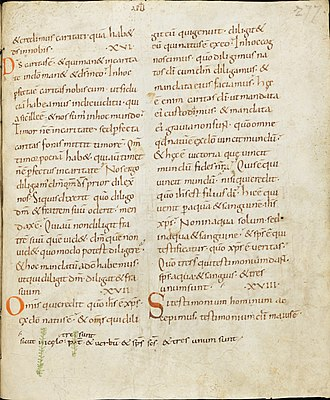 218
217
&credimus caritati qua hab&
ds innobis. XVI.
Ds caritas ē & quiman& incarita
te indō man& & ds ineo. Inhoc
caritas nobiscum ut fidu
cia habeamus indie iudicii qui
a sic ille ē & nos sum̄ inhoc mundo
Timor n̄ ē incaritate sed pfecta
caritas foras mittit timorē Qm̄
timor poena hab& qui autē tim&
n̄ ē pfectus incaritate Nos ergo
diligam dm̄ qm̄ ds prior
nos. Si quis dixerit quo diligo
dm̄ & fratrem suū oderit men
dax ē. Qui non diligit fra
trē suū quē vid& dm̄ quē non
vid& quomodo potest diligere
& hoc mandatū habemus
ut qui diligit dm̄ diligat & frā
suum XVII
Omis qui credit quo ihs ē xps
exdō natus ē & oms qui dili
git eū qui genuit diligit &
eū qui natus ē exeo Inhoc cog
noscimus quo diligimus na
tos dī cum dm̄ diligamus &
mandata eius faciamus Haec
ē enim caritas dī ut mandata
ei custodimus & mandata
ei gravia non sunt Quo omne
qd natū ē exdō vincit mundū
& haec ē victoria que vincit
mundū fides n̄ra Quis ē qui
vincit mundū nisi qui credit
quo ihs est filius dī Hic ē qui
venit p aqua & sanguinē ihs
xps Non in aqua solum sed
in aqua & sanguine & sps ē qui
testificatur quo xps ē veritas
Quo tres sunt qui testimonium dant
sps & aqua & sanguis & tres
unum sunt. XVIII
Si testimonium hominum ac
cepimus testimonium dī maius ē
sicut in celo tres sunt pat& verbū & sps scs & tres unum sunt